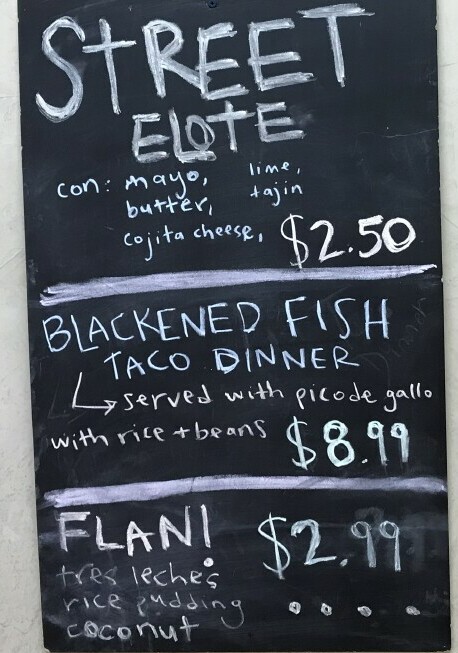 STREET
ELOTE
con: mayo, lime,
butter, tajin
cojita cheese, $2.50
BLACKENED FISH
TACO DINNER
served with pico de gallo
with rice + beans $8.99
FLAN! $2.99
tres leches
rice pudding
coconut